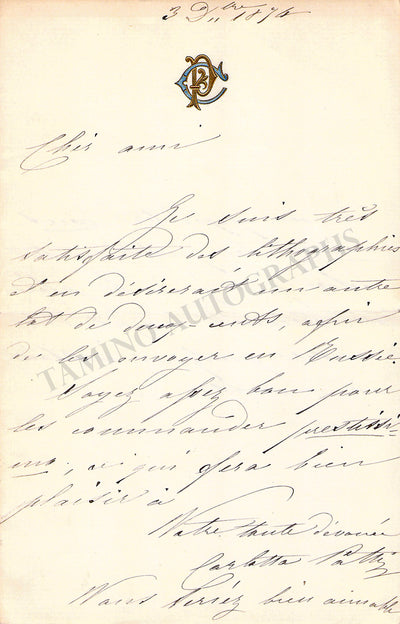 3 Dbre 1874
Cher ami
Je suis très
satisfaite des lithographies
et en désirerais un autre
lot de deux cents, afin
de les envoyer en Russie.
Soyez assez bon pour
les commander prestissi-
mo, ce qui fera bien
plaisir à
Votre toute dévouée
Carlotta Patti
Vous seriez bien aimable
TAMINO AUTOGRAPHS